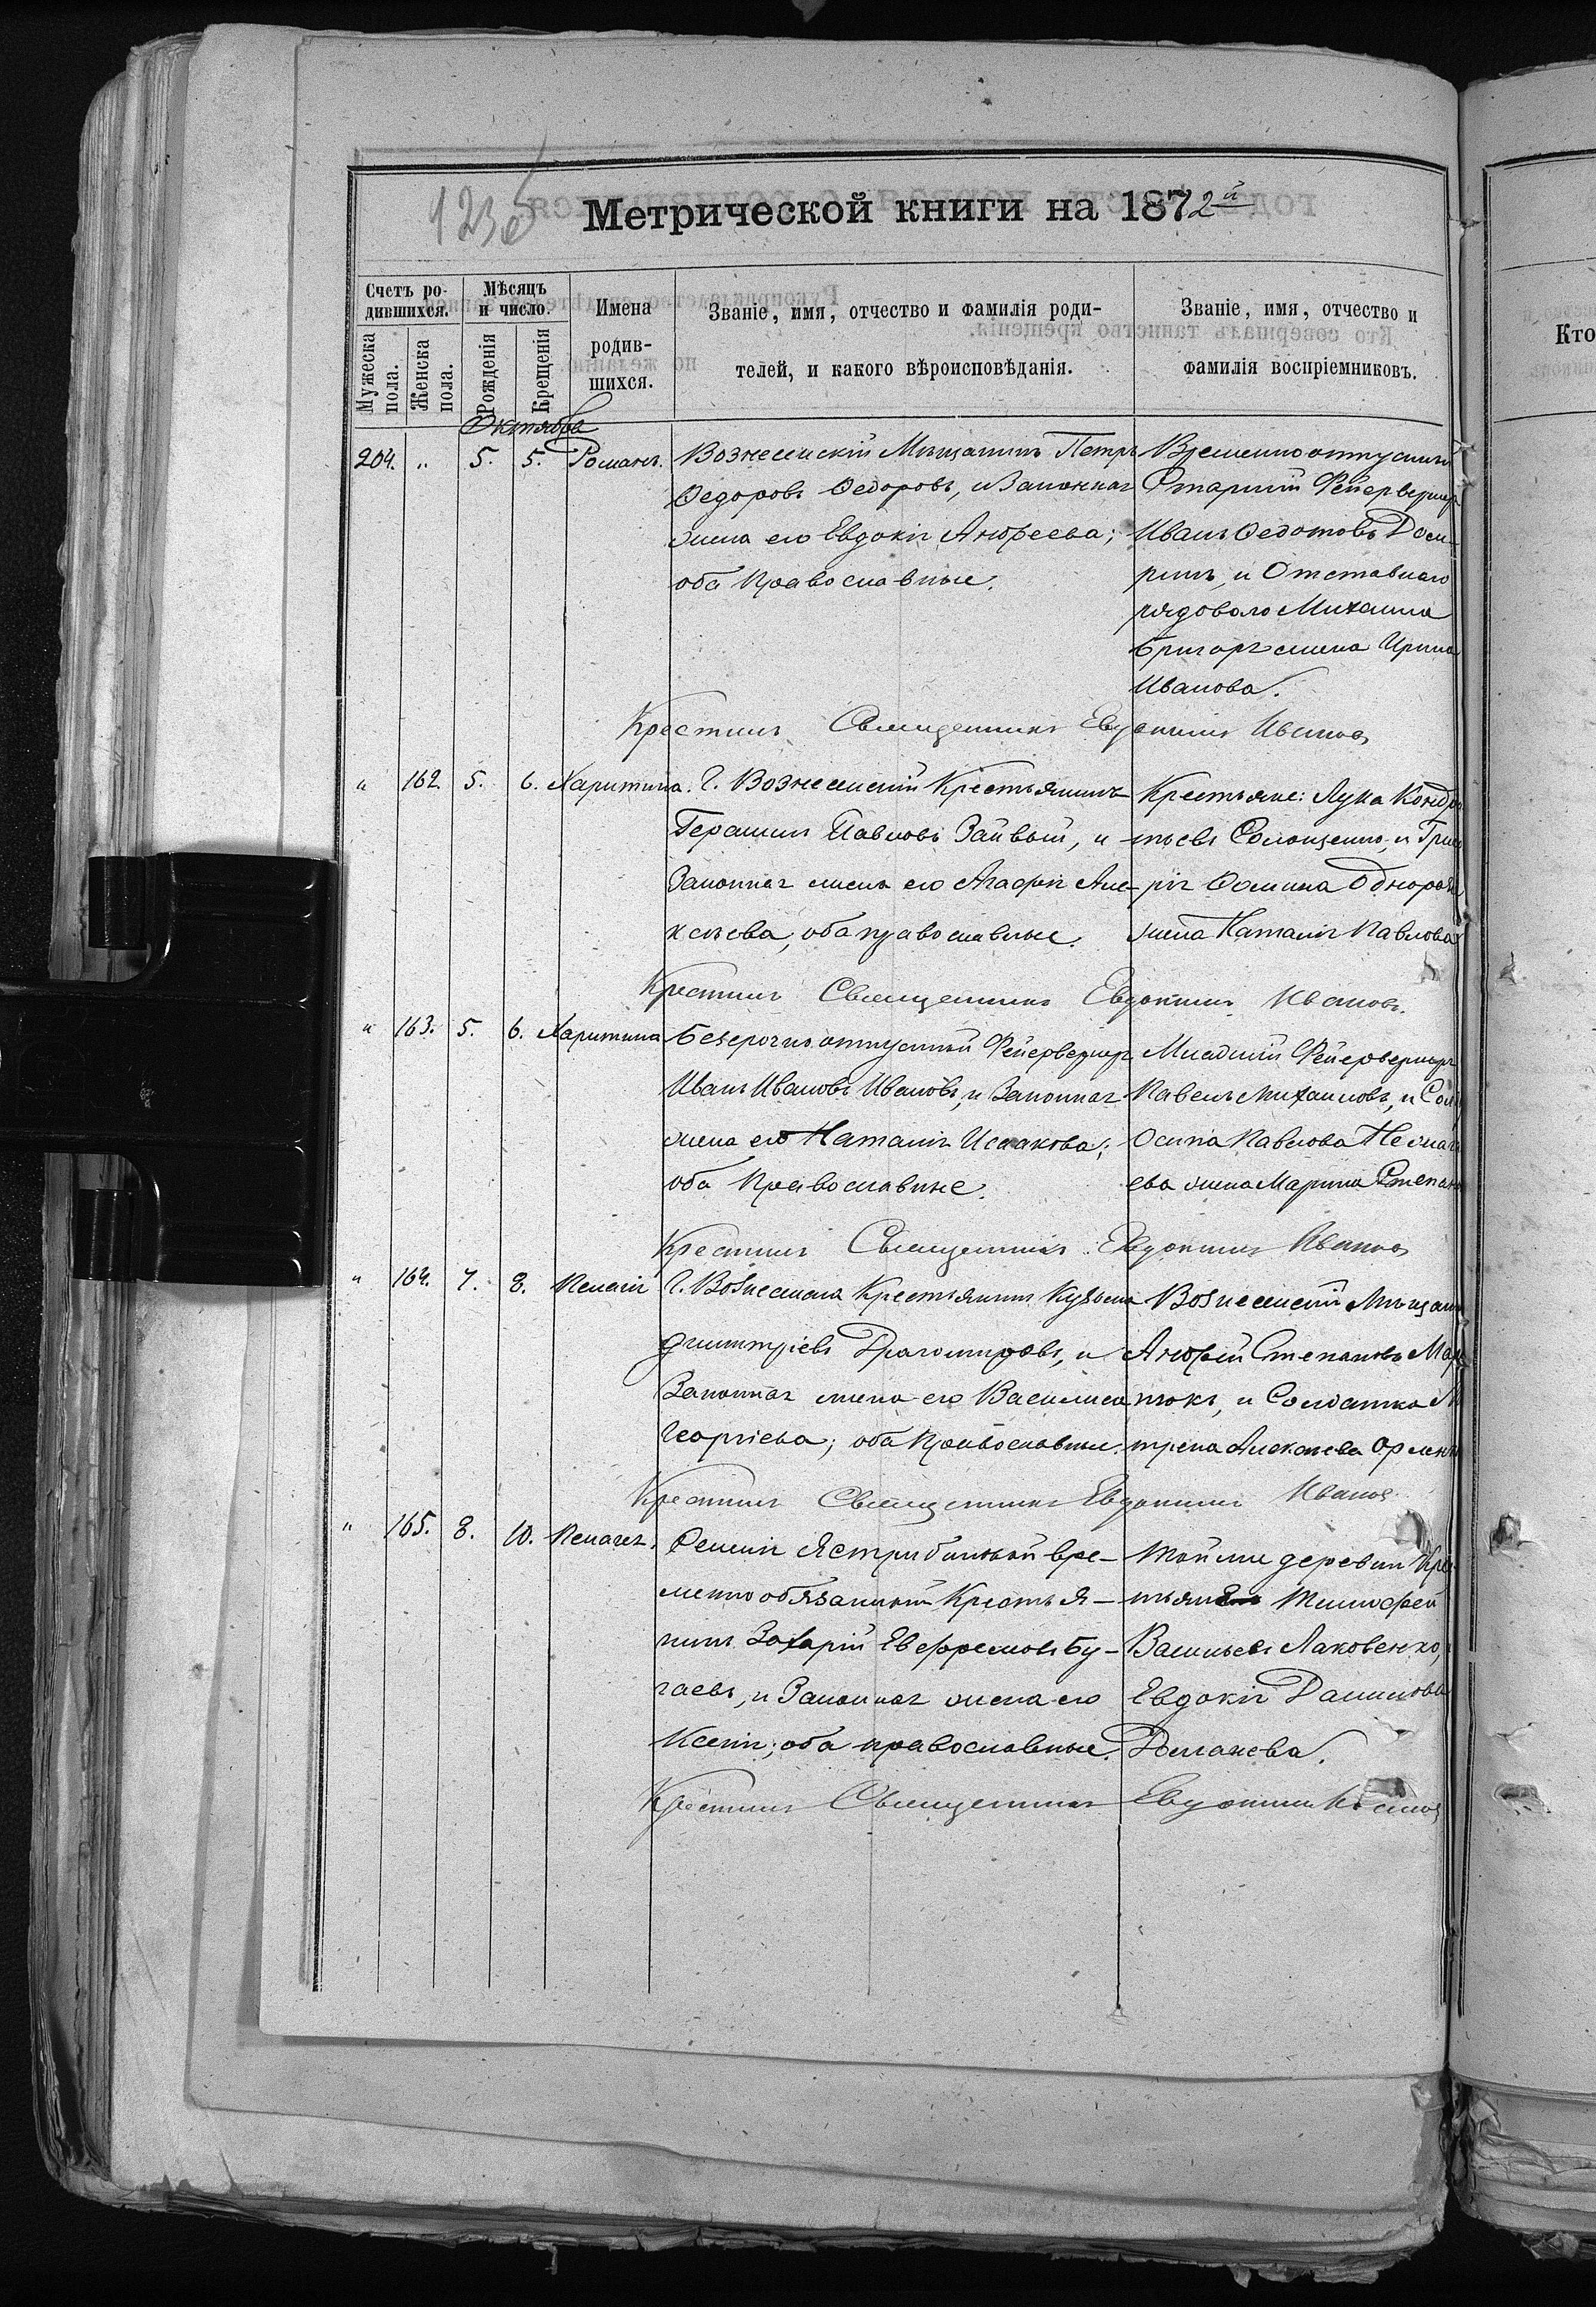 123
Метрической книги на 1872й
Счетъ ро-
дившихся.
Мужеска пола.
Женска пола.
Мѣсяцъ
и число.
Рожденія
Крещенія
Имена
родив-
шихся.
Званіе, имя, отчество и фамилія роди-
телей, и какого вѣроисповѣданія.
Званіе, имя, отчество и
фамилія воспріемниковъ.
Кто
Октября
204. " 5. 5. Романъ. Вознесенскій Мѣщанинъ Петръ
Ѳедоровъ Ѳедоровъ, и Законная
жена его Евдокія Андреева;
оба Православные.
Временноотпускный
Старшій Фейерверкер
Иванъ Ѳедотовъ
и Отставнаго
рядоваго Михаила
жена Ирина
Иванова.
Крестилъ Священникъ Евдокимъ Ивановъ
" 162 5. 6. Харитина. Г. Вознесенскій Крестьянинъ
Герасимъ Павловъ Заивый, и
Законная жена его Агафія Але-
ксѣева, оба православные.
Крестьяне: Лука Кондра
тьевъ Солощенко, и Григо
рія Ѳомина
жена Наталія Павлова
Крестилъ Священникъ Евдокимъ Ивановъ.
" 163. 5. 6. Харитина Безсрочно отпускный Фейерверкеръ
Иванъ Ивановъ Ивановъ, и Законная
жена его Наталія Исаакова;
оба Православные.
Младшій Фейерверкеръ
Павелъ Михаиловъ, и Сол
Осипа Павлова
ева жена Марина Степано
Крестилъ Священникъ Евдокимъ Ивановъ
" 164. 7. 8. Пелагія Г. Вознесенска Крестьянинъ Кузьма
Димитріевъ Драгомировъ, и
Законная жена его Василиса
Георгіева; оба Православные.
Вознесенскій Мѣщани
Андрей Степановъ Мар
тюкъ, и Солдатка М
трена Алексѣева
Крестилъ Священникъ Евдокимъ Ивановъ
" 165. 8. 10. Пелагея. Селенія Ястребиновой вре-
менно обязанной Крестья-
нинъ Захарій Евфремовъ Бу-
гаевъ, и Законная жена его
Ксенія; оба православные.
Той же деревни Кре
стьянинъ Тимофей
Васильевъ Лаковенко,
Евдокія Данилова
Крестилъ Священникъ Евдокимъ Ивановъ